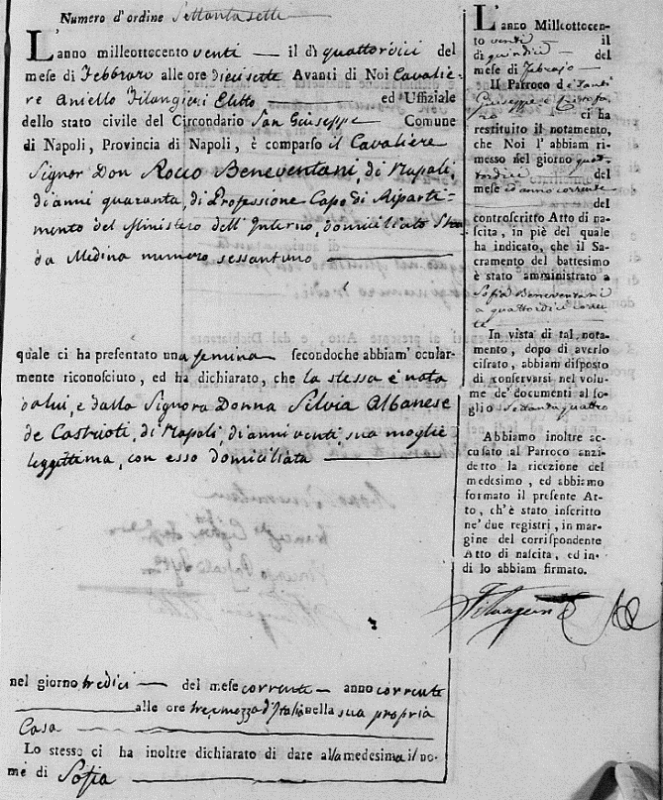 Numero d'ordine Settantasette
L'anno milleottocento venti — il dì quattordici del
mese di Febbraro alle ore diecisette Avanti di Noi Cavalie-
re Aniello Filangieri Eletto — ed Uffiziale
dello stato civile del Circondario San Giuseppe Comune
di Napoli, Provincia di Napoli, è comparso il Cavaliere
Signor Don Rocco Beneventani, di Napoli,
di anni quaranta, di Professione Capo di Riparti-
mento del Ministero dell'Interno, domiciliato Stra-
da Medina numero sessantuno
quale ci ha presentato una femina secondoche abbiam' ocular-
mente riconosciuto, ed ha dichiarato, che la stessa è nata
da lui, e dalla Signora Donna Silvia Albanese
de Castrioti, di Napoli, di anni venti, sua moglie
leggettema, con esso domiciliata
nel giorno tredici — del mese corrente — anno corrente
alle ore tre mezza d'Italia nella sua propria
Casa
Lo stesso ci ha inoltre dichiarato di dare alla medesima il no-
me di Sofia
L'anno Milleottocen-
to venti — il
dì quindici — del
mese di Febrajo —
Il Parroco de' Santi
Giuseppe e Cristofa-
ro ci ha
restituito il notamento,
che Noi l'abbiam ri-
messo nel giorno quat-
tordici — del
mese ed anno corrente
del
controscritto Atto di na-
scita, in piè del quale
ha indicato, che il Sa-
cramento del battesimo
è stato amministrato a
Sofia Beneventani
a quattordici corren-
te
In vista di tal nota-
mento, dopo di averlo
cifrato, abbiam disposto
di conservarsi nel volume
de' documenti al fo-
glio settantaquattro
Abbiamo inoltre ac-
cusato al Parroco anzi-
detto la ricezione del
medesimo, ed abbiamo
formato il presente At-
to, ch'è stato inscritto
ne' due registri, in mar-
gine del corrispondente
Atto di nascita, ed in-
di lo abbiam firmato.
Filangieri